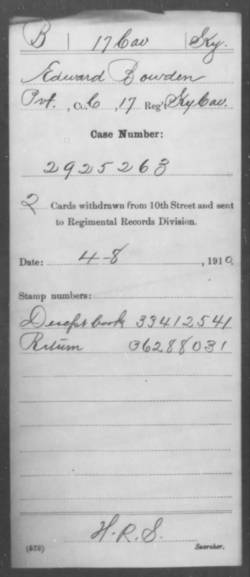 B | 17 Cav | Ky.
Edward Bowden
Pvt., Co. C, 17 Reg't Ky Cav.
Case Number:
2925263
2 Cards withdrawn from 10th Street and sent
to Regimental Records Division.
Date: 4-8, 1910
Stamp numbers:
Descpt book 33412541
Return 36288031
H. R. S.
(573) Searcher.